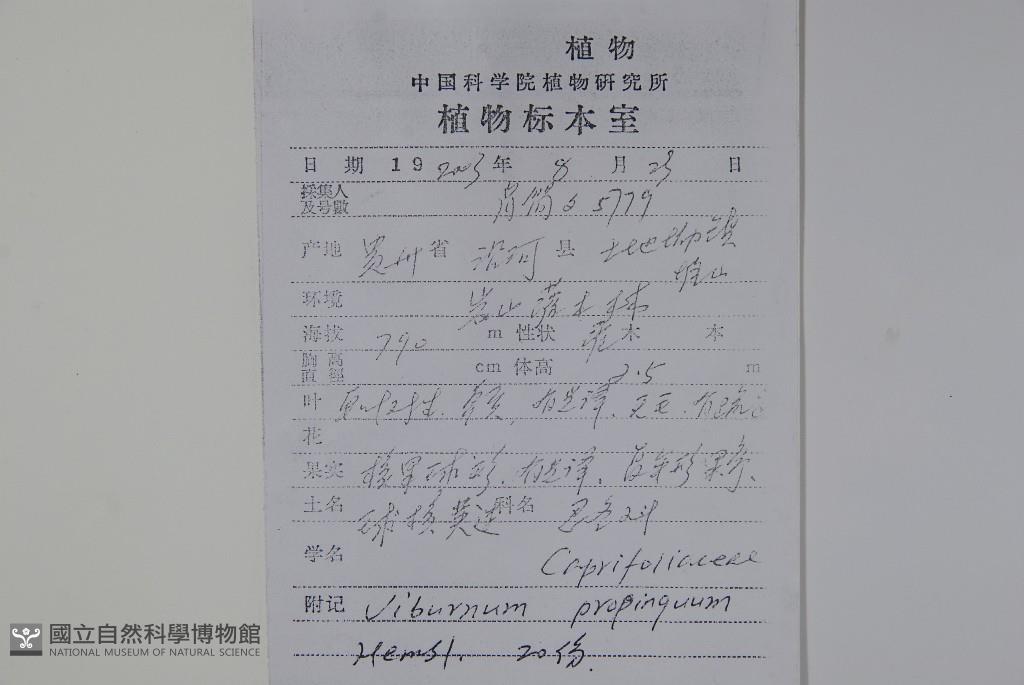 植物
中国科学院植物研究所
植物标本室
日 期 19 2003 年 8 月 23 日
採集人
及号數 5779
产地 贵州 省 沿河 县 土地坳镇
环境 岩山灌木林
海拔 790 m 性状 灌木 本
胸高
直徑 cm 体高 2.5 m
叶 单叶对生. 革质, 有光泽, 无毛.
花
果实 核果球形, 有光泽,
土名 球核荚迷 科名 忍冬科
学名 Caprifoliaceae
附记 Viburnum propinquum
Hemsl. 20份.
國立自然科學博物館
NATIONAL MUSEUM OF NATURAL SCIENCE